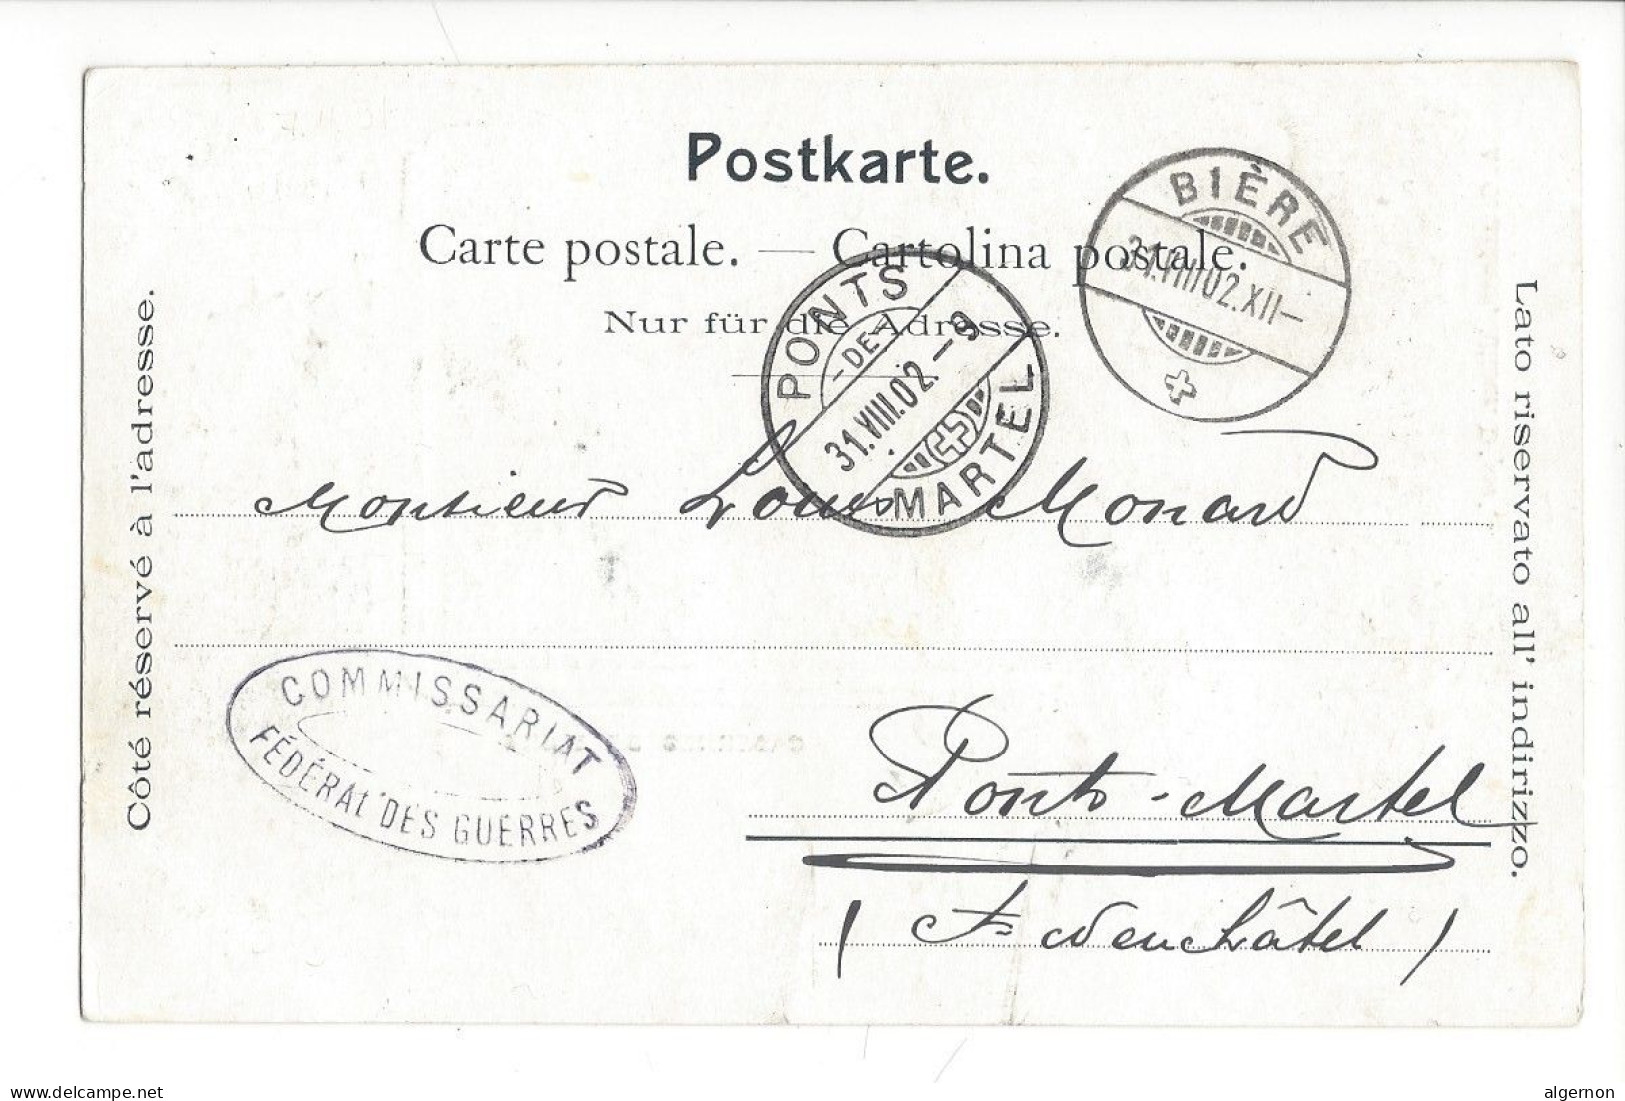 Postkarte.
Carte postale. — Cartolina postale.
Nur für die Adresse.
BIÈRE
31.VIII 02.XII–
PONTS
–DE–
31.VIII.02.–9
MARTEL
Côté réservé à l'adresse.
Lato riservato all' indirizzo.
Monsieur Louis Monard
COMMISSARIAT
FÉDÉRAL DES GUERRES
Ponts-Martel
( Ct. de Neuchâtel )
www.delcampe.net
algernon